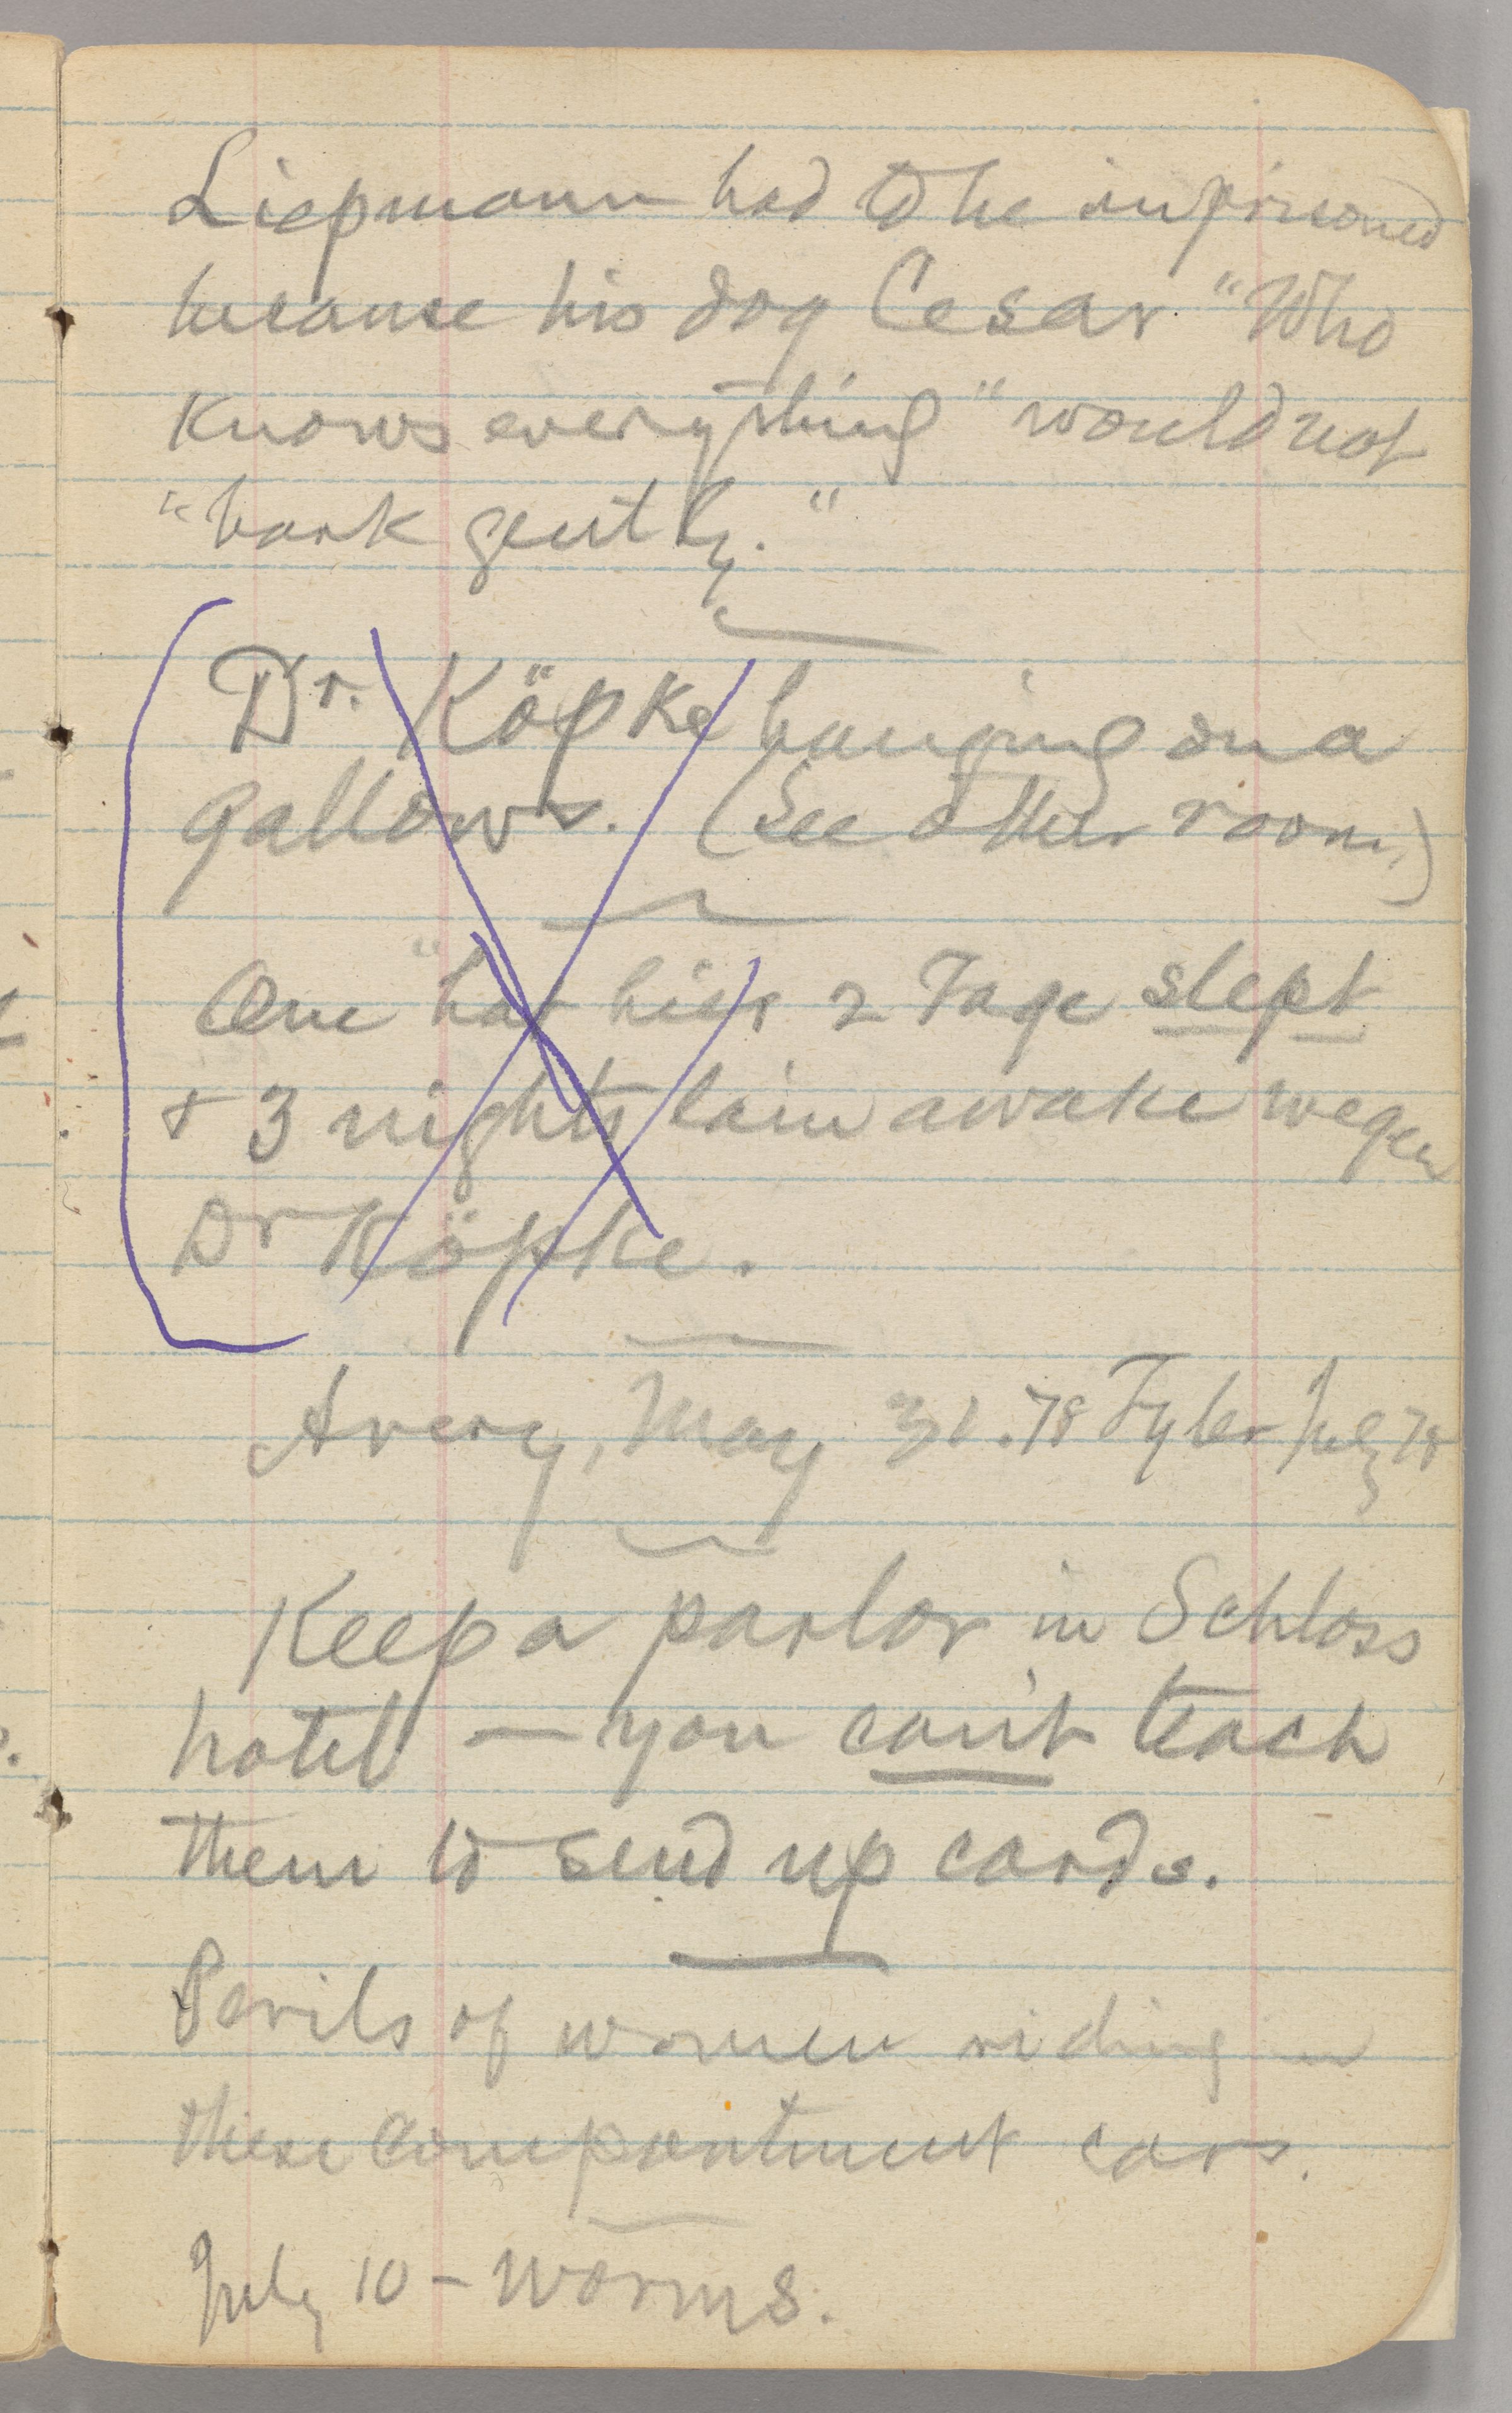 Liepmann had to be imprisoned
because his dog Cesar "Who
knows everything" would not
"bark gently."
Dr. Köpke hanging on a
gallows. (See other room.)
One "hat hier 2 Tage slept
& 3 nights lain awake wegen
Dr Köpke.
Avery, May 31.78 Tyler July 78
Keep a parlor in Schloss
hotel — you can't teach
them to send up cards.
Perils of women riding in
these compartment cars.
July 10 – Worms.